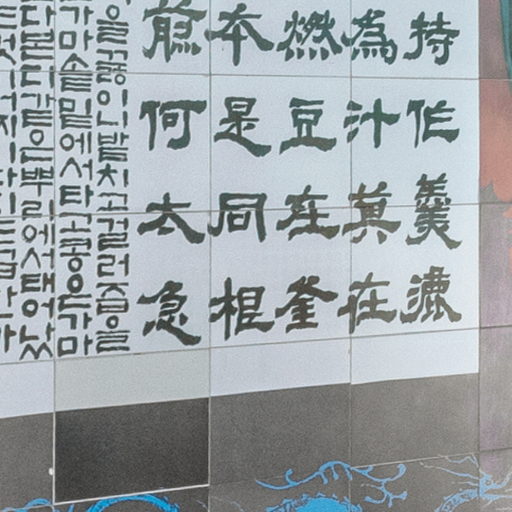 持作羹漉
為汁萁在
燃豆在釜
本是同根
煎何太急
을끓이니발치고걸러즙을
가마솥밑에서타고콩은가마
다본디같은뿌리에서태어났